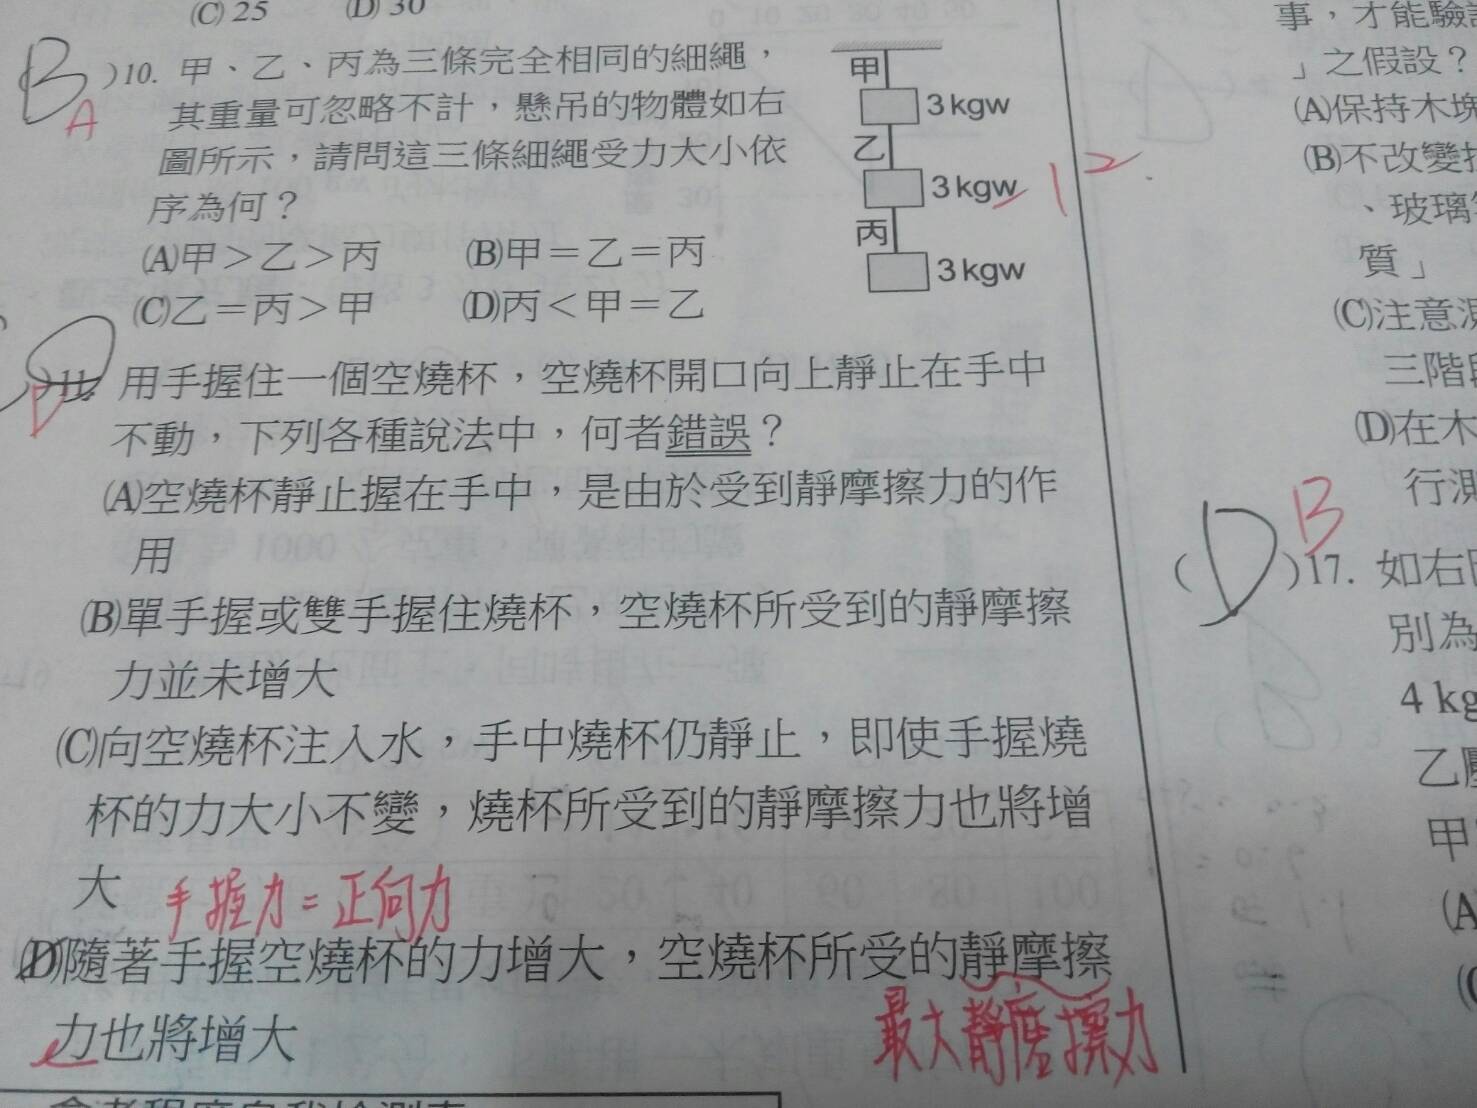 (C) 25 (D) 30
B
A
)10. 甲、乙、丙為三條完全相同的細繩，
其重量可忽略不計，懸吊的物體如右
圖所示，請問這三條細繩受力大小依
序為何？
(A)甲＞乙＞丙 (B)甲＝乙＝丙
(C)乙＝丙＞甲 (D)丙＜甲＝乙
甲
3 kgw
乙
3 kgw
丙
3 kgw
12.
D
D
)11. 用手握住一個空燒杯，空燒杯開口向上靜止在手中
不動，下列各種說法中，何者錯誤？
(A)空燒杯靜止握在手中，是由於受到靜摩擦力的作
用
(B)單手握或雙手握住燒杯，空燒杯所受到的靜摩擦
力並未增大
(C)向空燒杯注入水，手中燒杯仍靜止，即使手握燒
杯的力大小不變，燒杯所受到的靜摩擦力也將增
大
手握力=正向力
(D)隨著手握空燒杯的力增大，空燒杯所受的靜摩擦
力也將增大
最大靜摩擦力
事，才能驗
」之假設？
(A)保持木塊
(B)不改變
、玻璃
質」
(C)注意測
三階
(D)在木
行測
B
(D)17. 如右
別為
4 kg
乙
甲
(A
(C